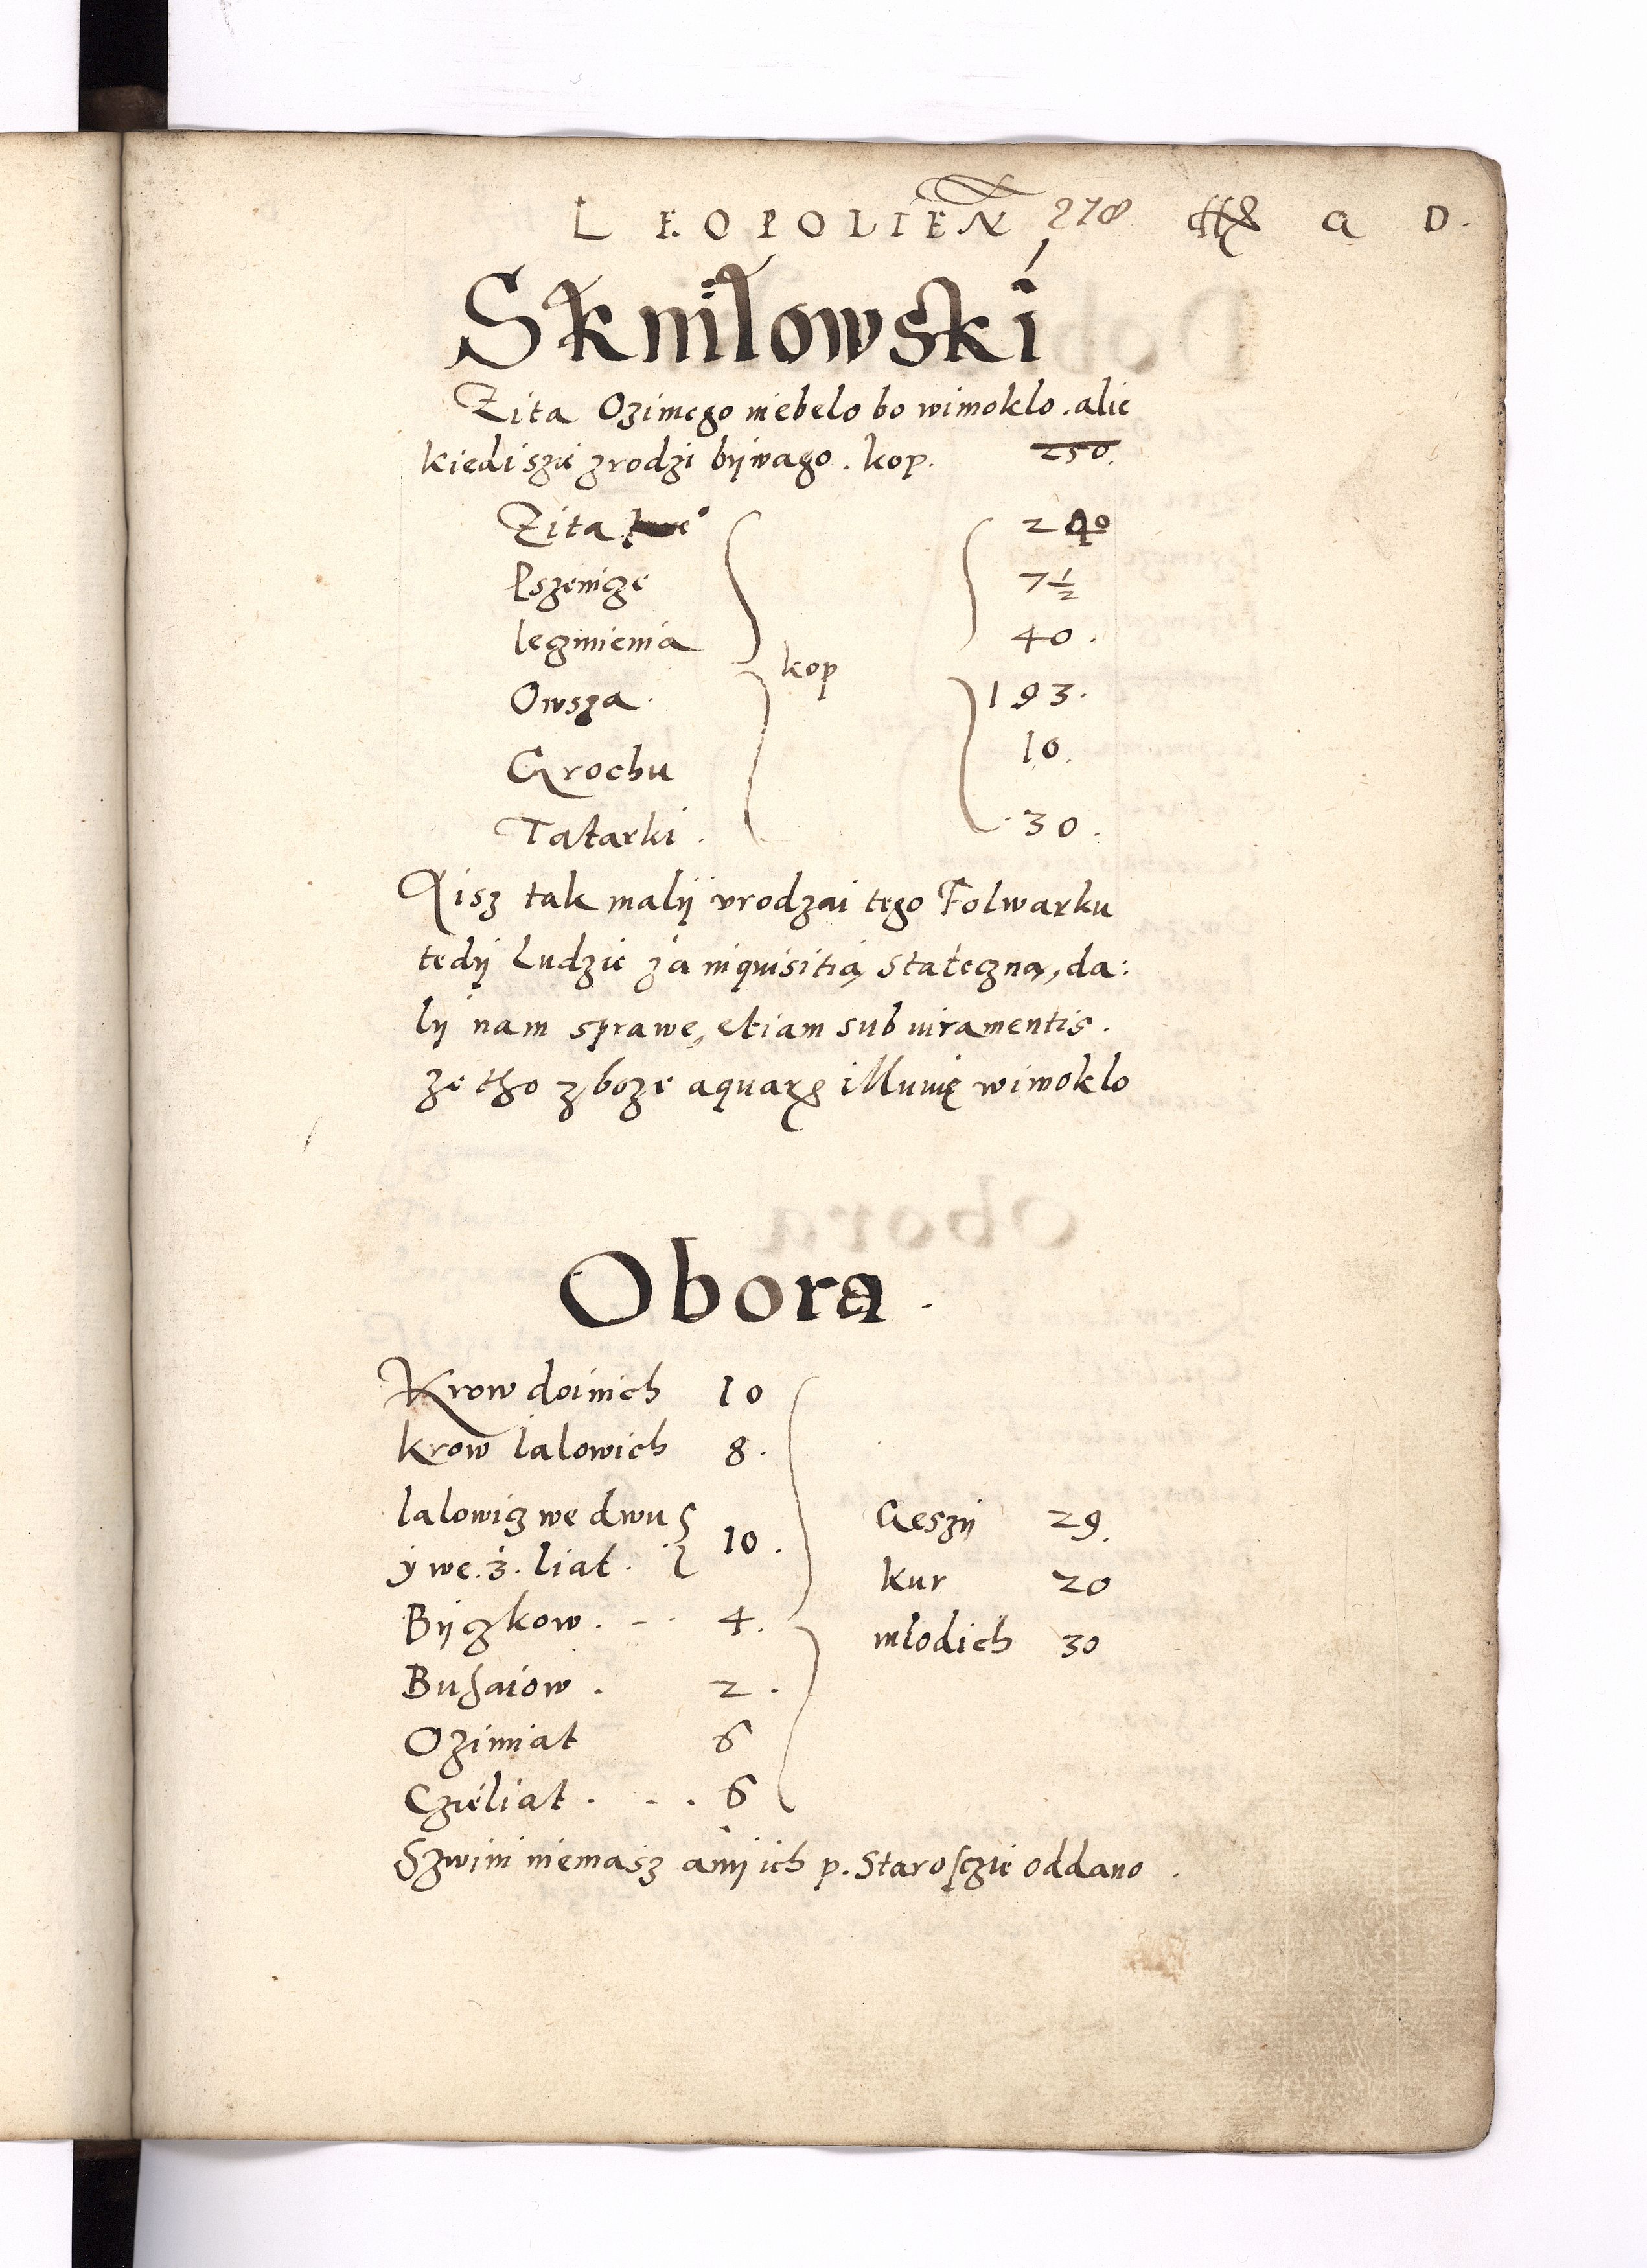 LEOPOLIEN 278 a D.
Sknilowski
Zita Ozimego niebelo bo wimoklo. alie
kiedi szie zrodzi bÿwago. kop. 250.
Zita 240
Pszenicze 7 1/2
Ieczmienia 40.
kop
Owsza. 193.
Grochu 10.
Tatarki. 30.
Aisz tak malÿ vrodzai tego Folwarku
tedÿ Ludzie zá inquisitią stateczną, da:
lÿ nam sprawę, etiam sub iuramentis.
ze tho zboze aquarum illuuię wimoklo
Obora.
Krow doinich 10
krow Ialowich 8.
Ialowicz we dwu
ÿ we. 3. liat. 10.
Bÿczkow. 4.
Buhaiow. 2.
Ozimiat 6
Czieliat. 6
Gęszÿ 29.
kur 20
mlodich 30
Szwini niemasz anÿ ich p. Starosczie oddano.